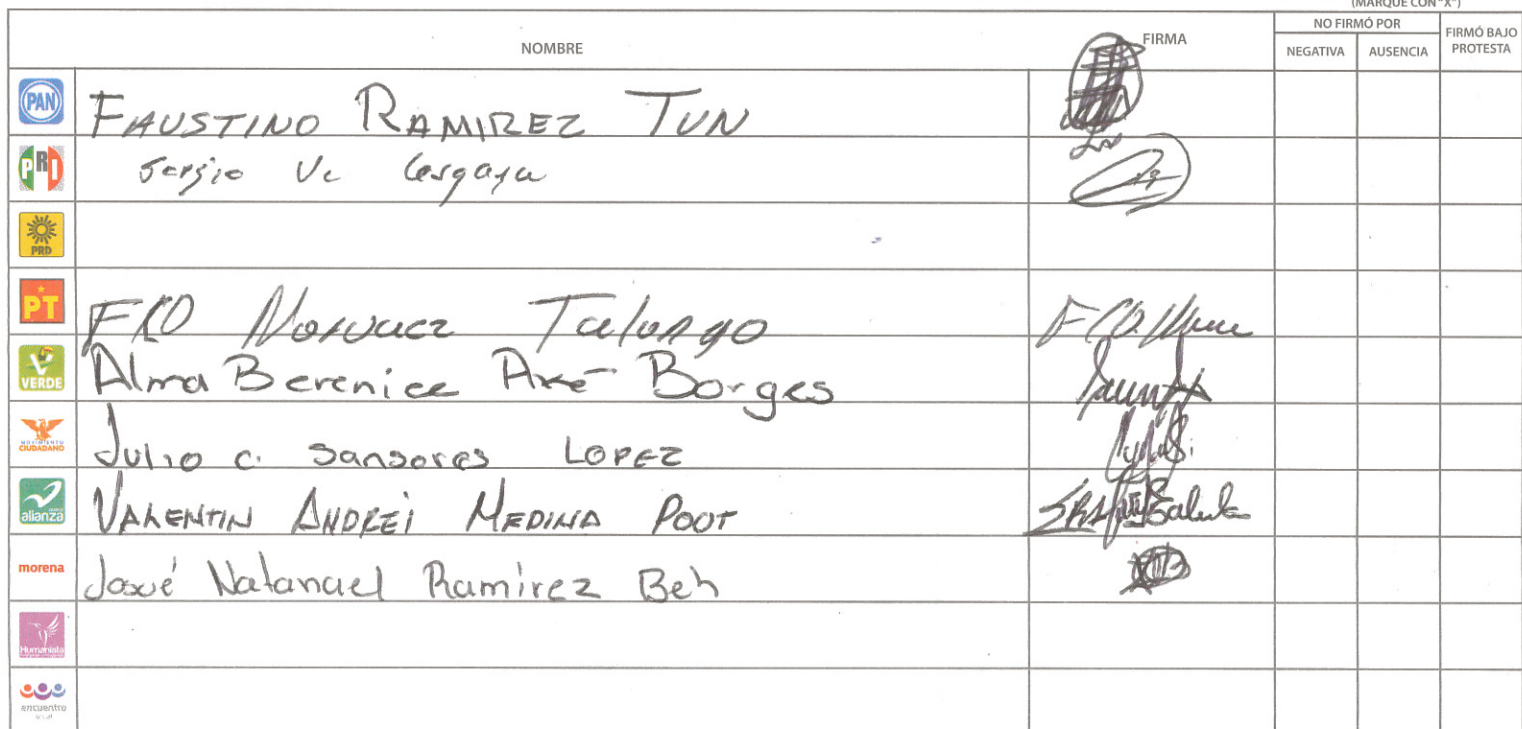 (MARQUE CON "X")
NOMBRE FIRMA NO FIRMÓ POR FIRMÓ BAJO PROTESTA
NEGATIVA AUSENCIA
PAN FAUSTINO RAMIREZ TUN
PRI Sergio
PRD
PT FCO Talango
VERDE Alma Berenice Axé Borges
MOVIMIENTO CIUDADANO Julio c. Sansores LOPEZ
alianza VALENTIN ANDREI MEDINA POOT
morena Josué Natanael Ramirez Beh
Humanista
encuentro social